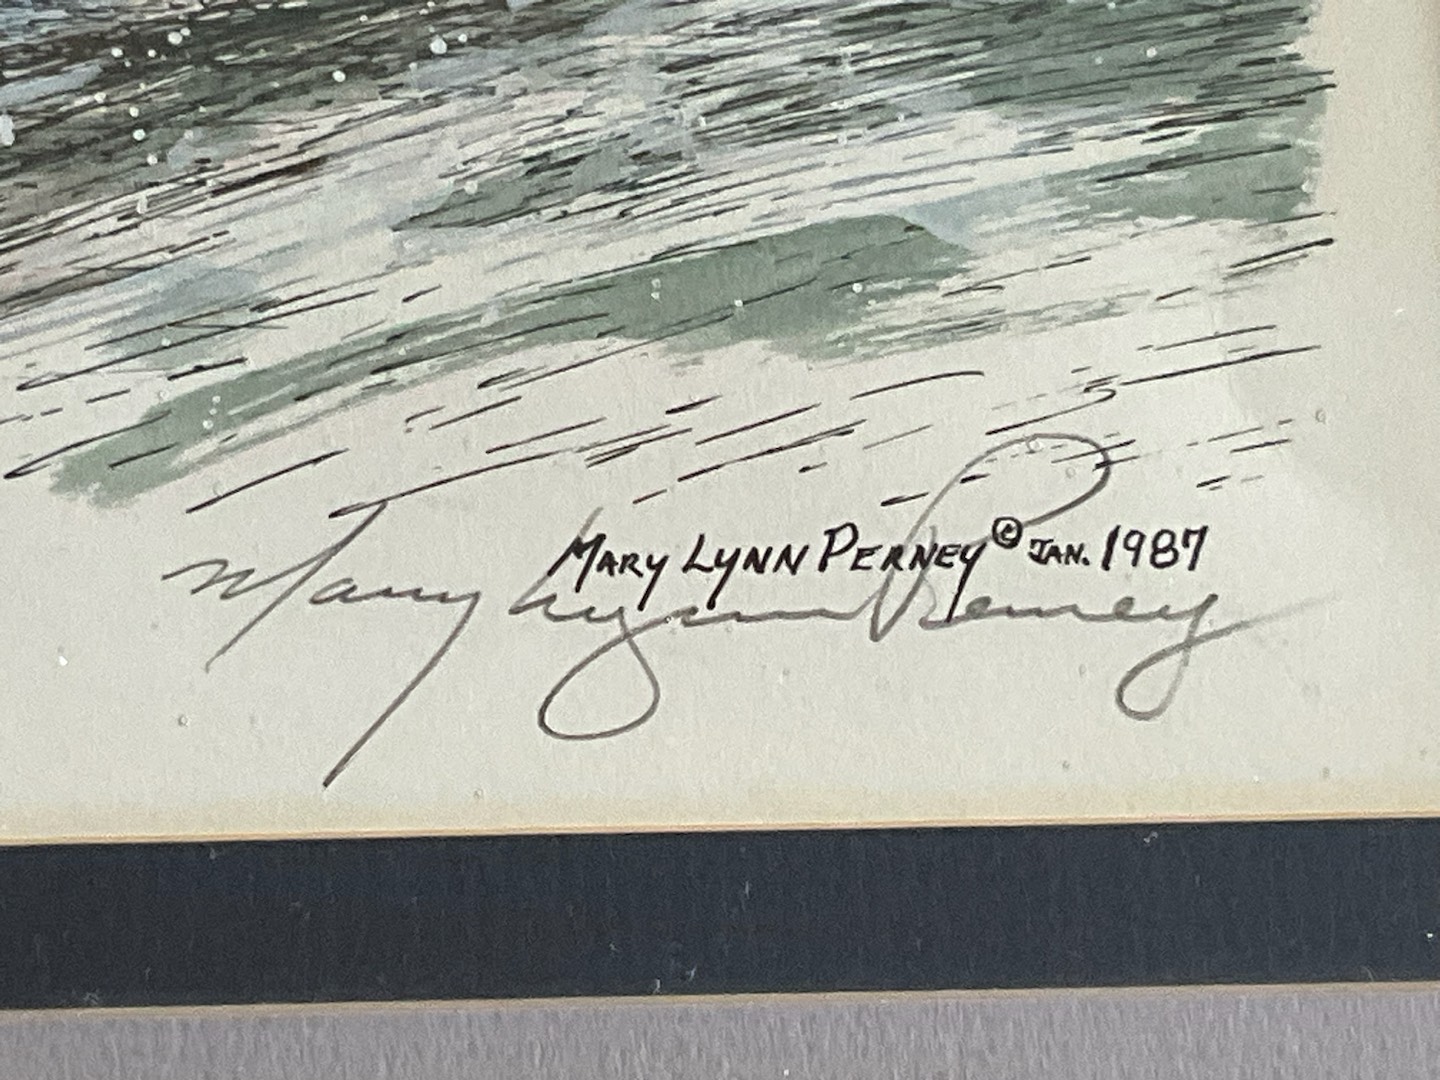 MARY LYNN PERNEY © JAN. 1987
Mary Lynn Perney